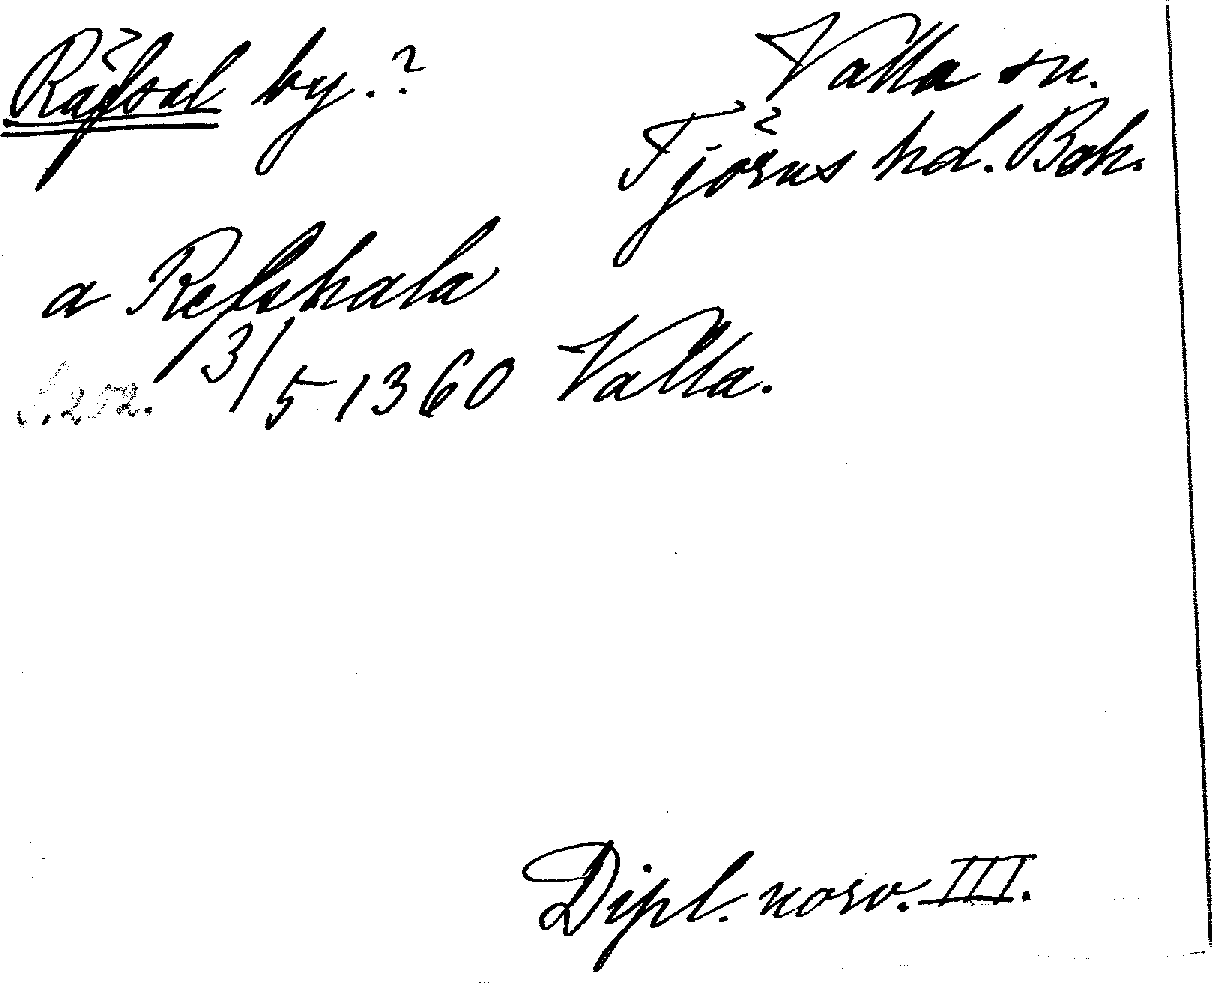 Räfsal by.?
Valla sn.
Tjörns hd. Boh.
a Refshala
S. 252. 13/5 1360 Valla.
Dipl. norv. III.